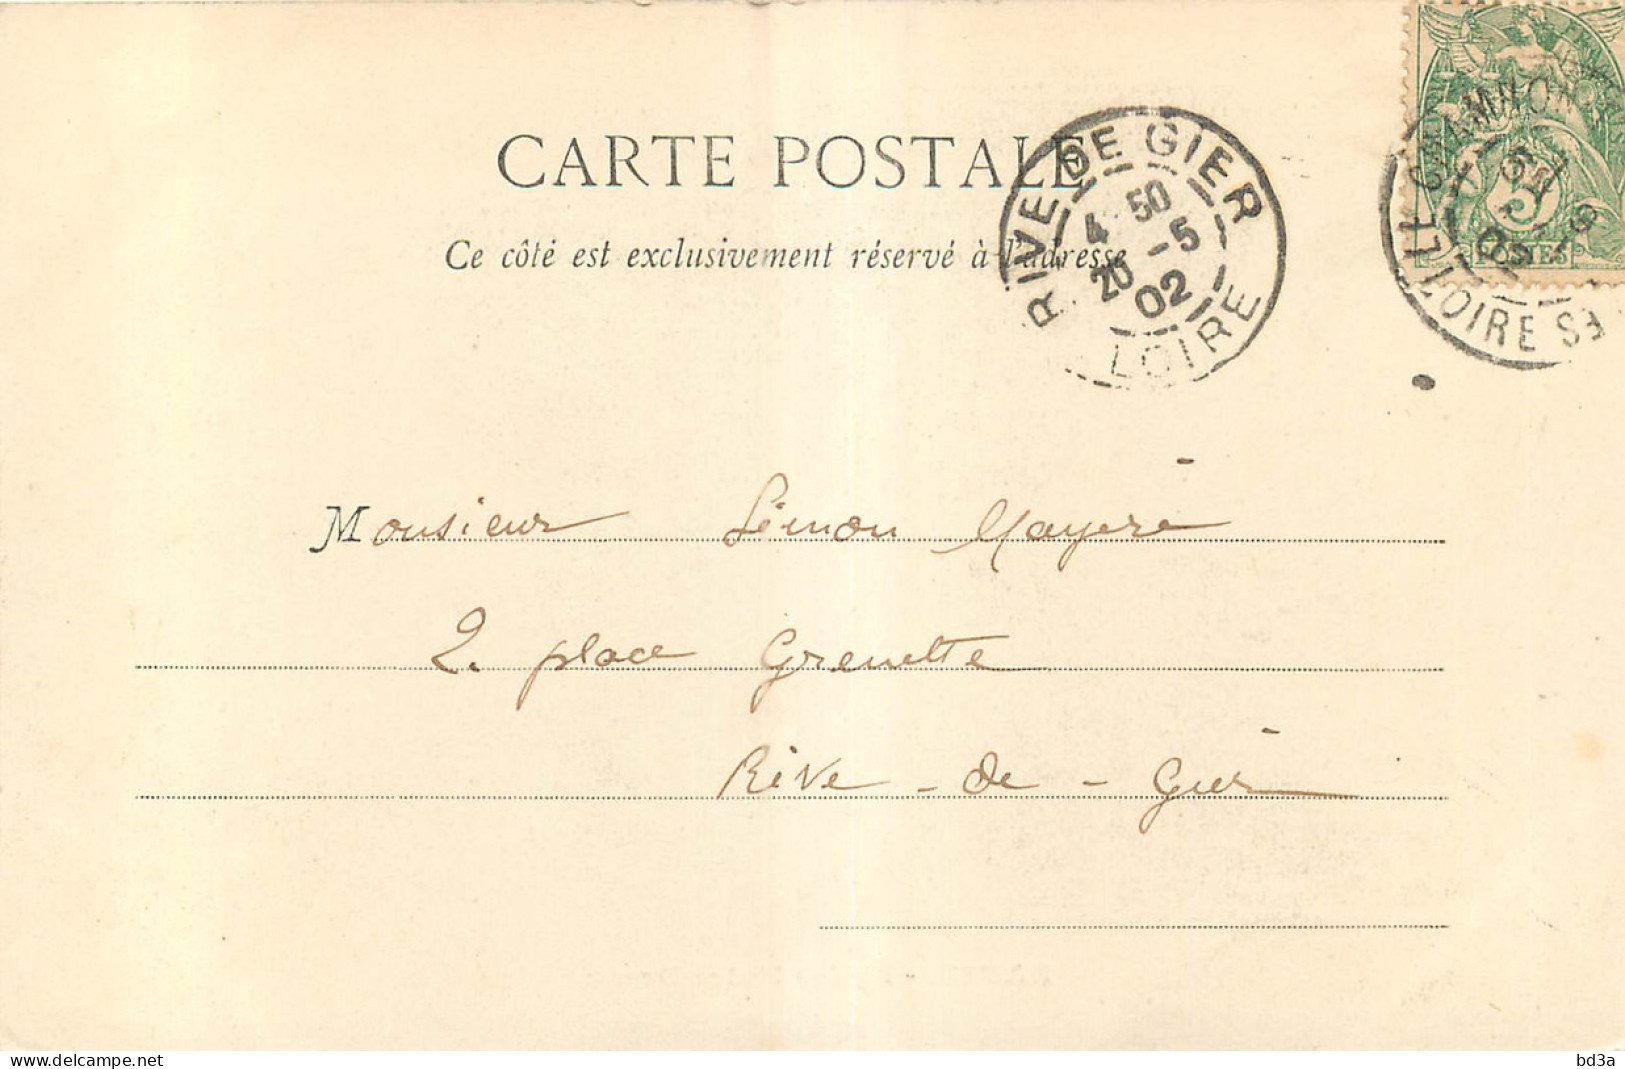 CARTE POSTALE
Ce côté est exclusivement réservé à l'adresse
RIVE DE GIER
4 50
20 -5
02
LOIRE
5
POSTES
LOIRE
Monsieur Simon Mayère
2. place Grenette
Rive-de-Gier
delcampe.net
bd3a